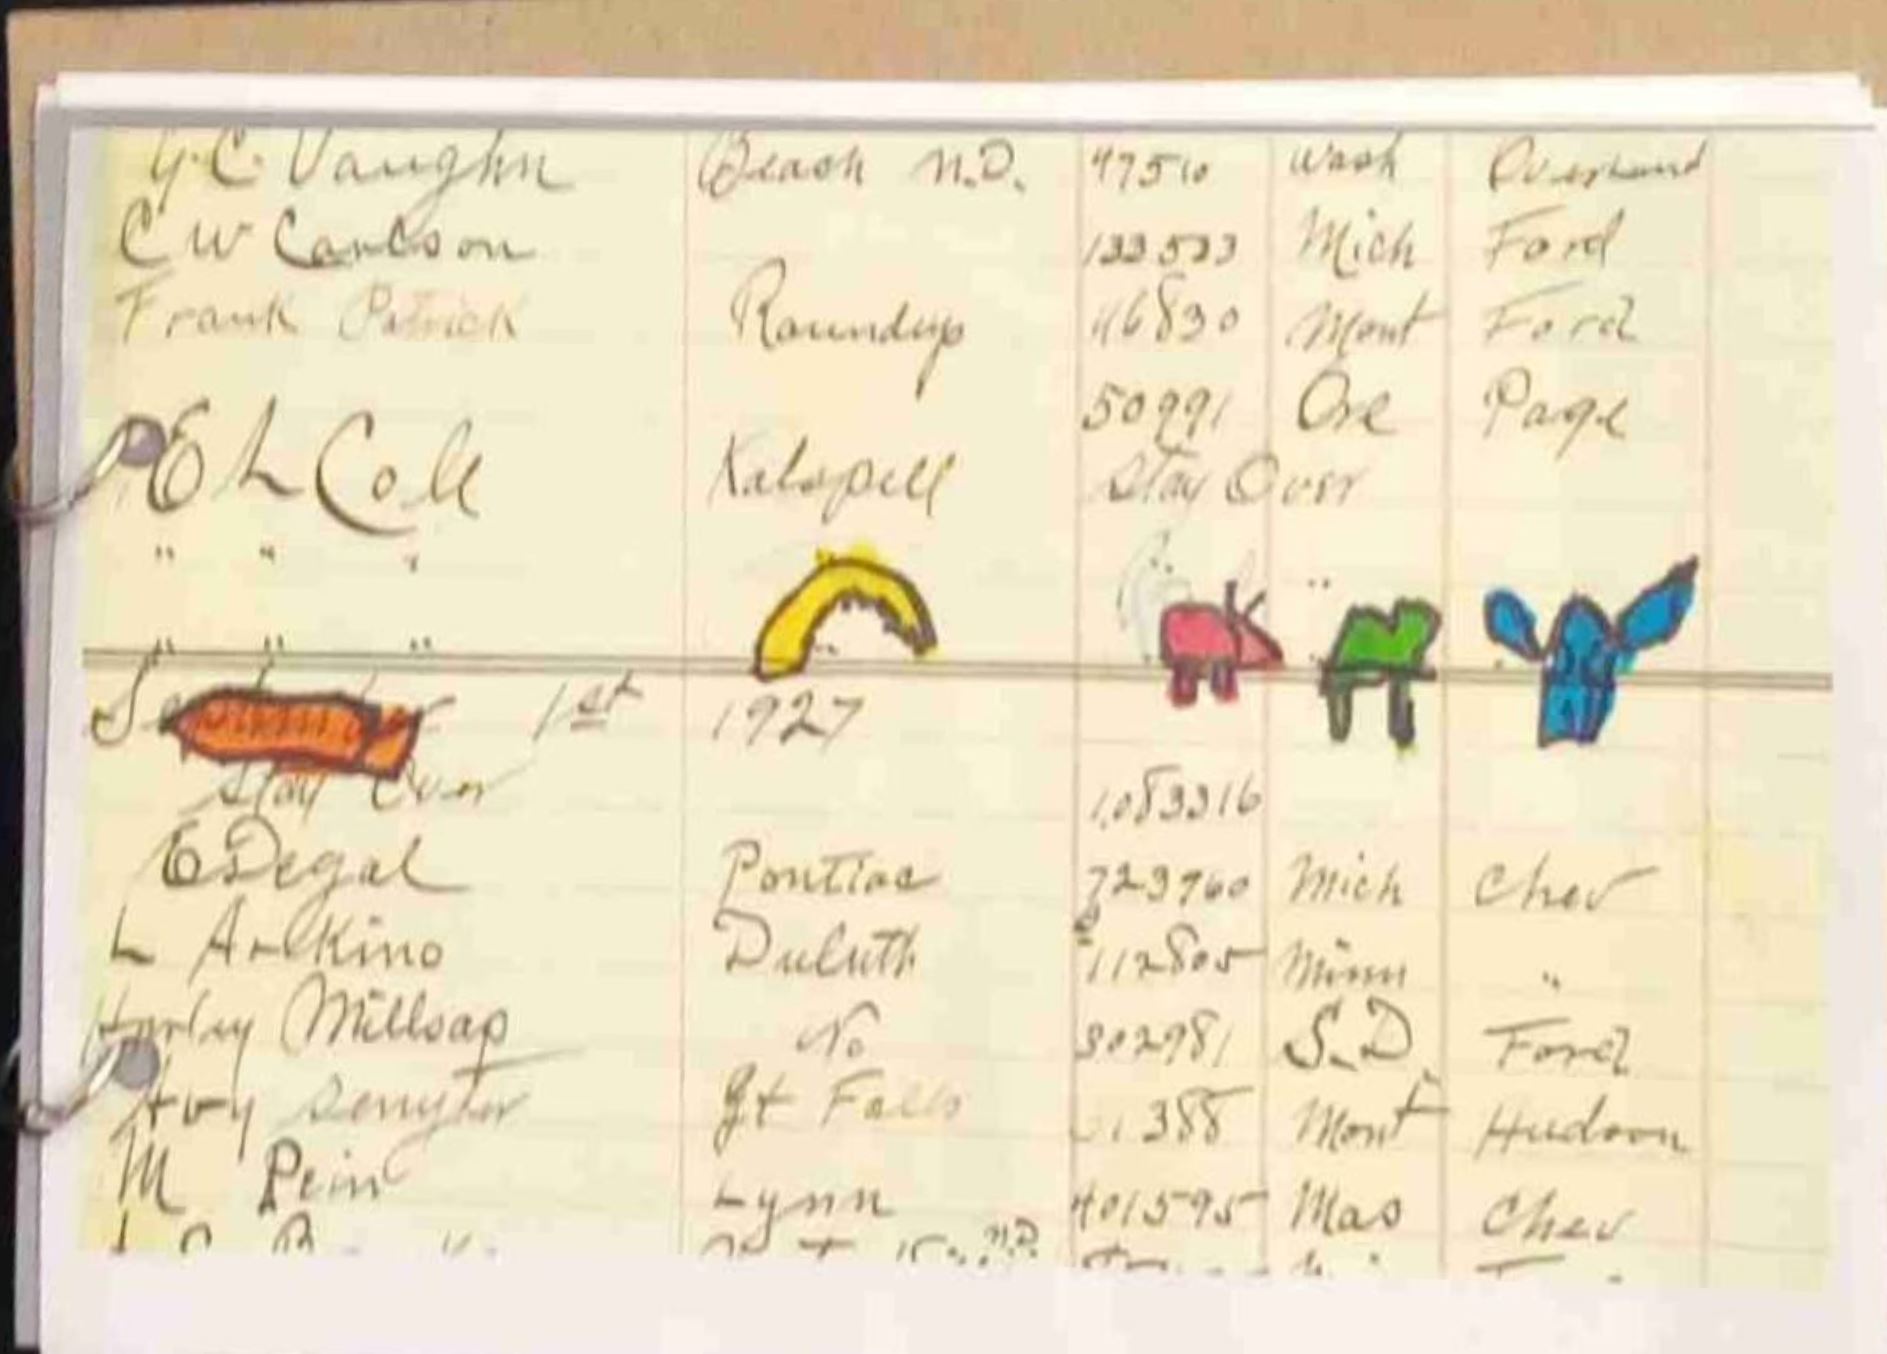 C. Vaughn Beach N.D. 47510 Wash Overland
C W Carlson 133533 Mich Ford
Frank Patrick Roundup 46830 Mont Ford
50991 Ore Paige
E L Cole Kalspell Stay Over
" " "
" " "
1st 1927
Stay Over 1083316
E Degal Pontiac 723760 Mich Chev
L Arlkino Duluth 112805 Minn "
Harley Millsap No 302981 S.D. Ford
Gt Falls 1388 Mont Hudson
M Pein Lynn 401595 Mas Chev
N.D.